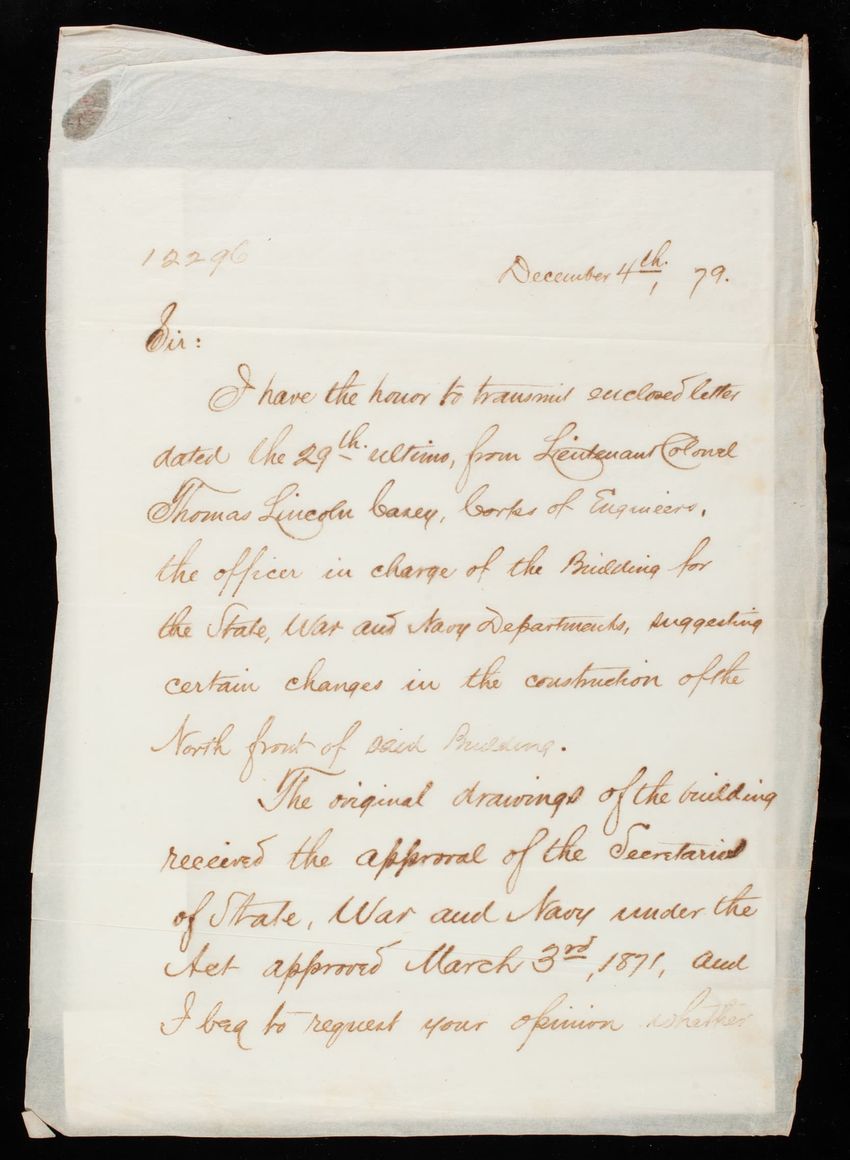 12296
December 4th, 79.
Sir:
I have the honor to transmit enclosed letter
dated the 29th. ultimo, from Lieutenant Colonel
Thomas Lincoln Casey, Corps of Engineers,
the officer in charge of the Building for
the State, War and Navy Departments, suggesting
certain changes in the construction of the
North front of said Building.
The original drawings of the building
received the approval of the Secretaries
of State, War and Navy under the
Act approved March 3rd, 1871, and
I beg to request your opinion whether